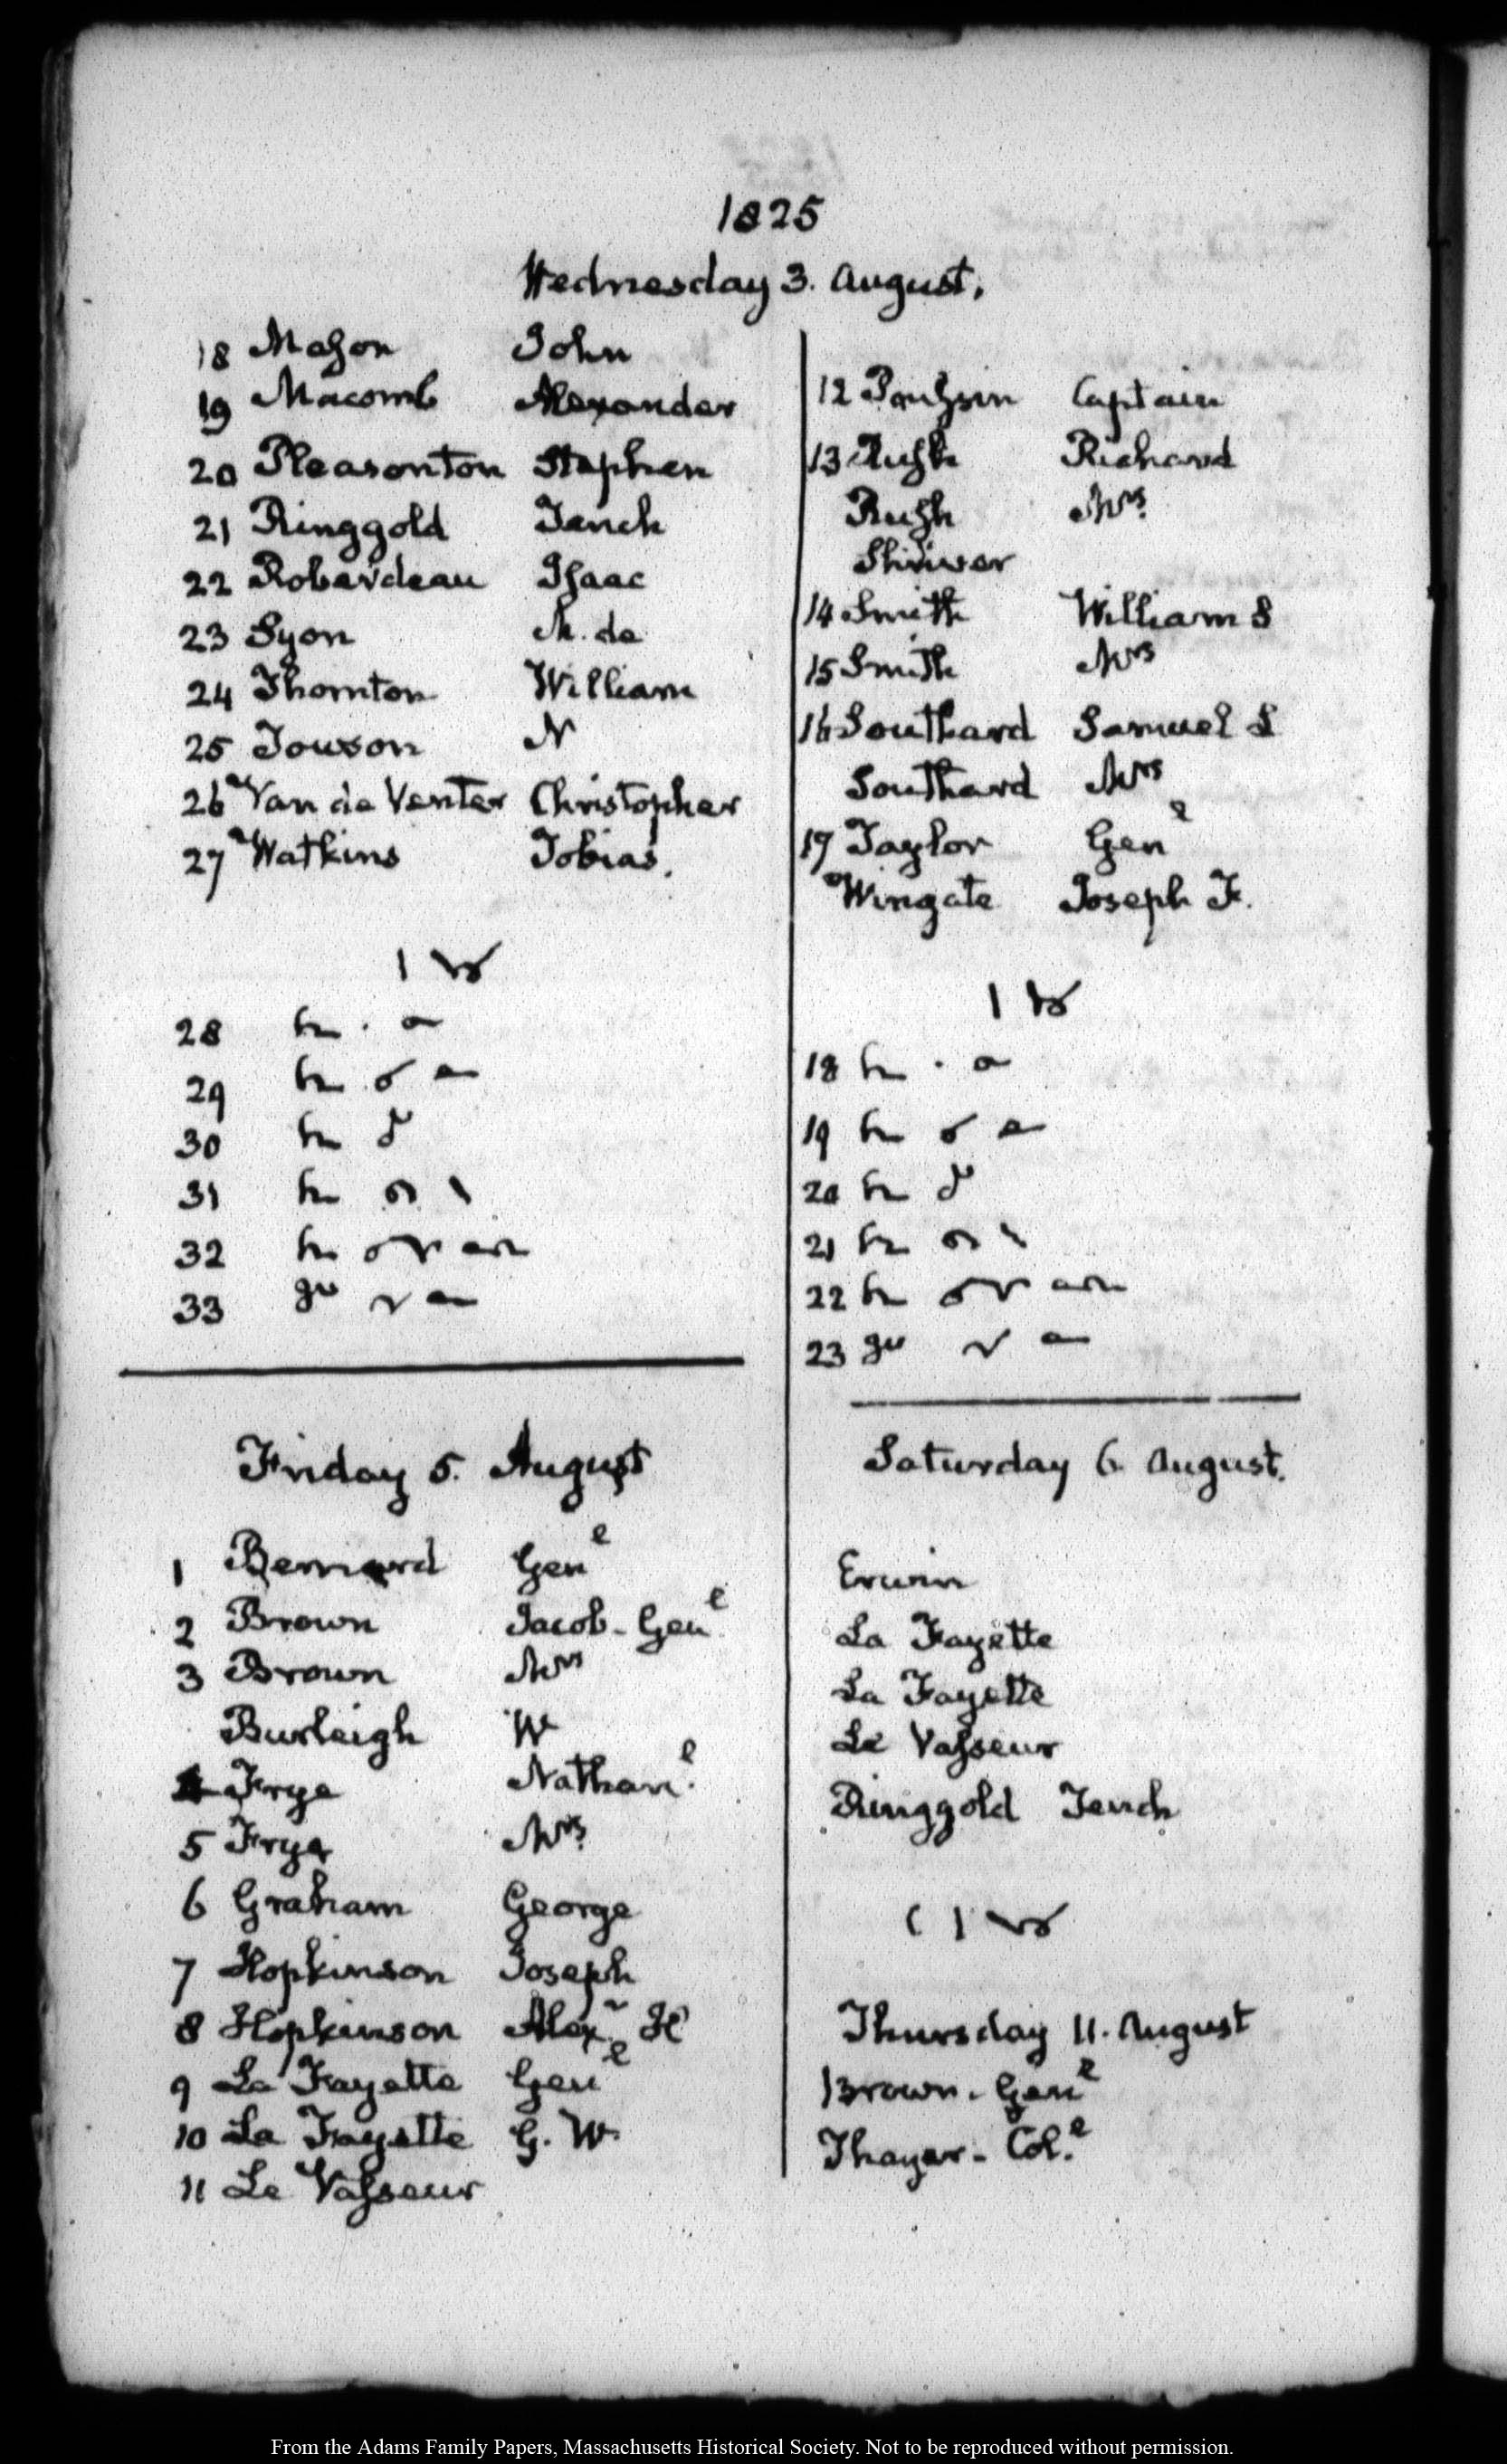 1825
Wednesday 3. August.
18 Mason John
19 Macomb Alexander
20 Pleasonton Stephen
21 Ringgold Tench
22 Roberdeau Isaac
23 Syon M. de
24 Thornton William
25 Towson N
26 Van de Venter Christopher
27 Watkins Tobias.
28
29
30
31
32
33
Friday 5. August
1 Bernard Genl
2 Brown Jacob - Genl
3 Brown Mrs
Burleigh W
4 Frye Nathanl.
5 Frye Mrs
6 Graham George
7 Hopkinson Joseph
8 Hopkinson Alexr. H
9 La Fayette Genl
10 La Fayette G. W.
11 Le Vasseur
12 Poussin Captain
13 Rush Richard
Rush Mrs
Shriver
14 Smith William S
15 Smith Mrs
16 Southard Samuel L
Southard Mrs
17 Taylor Genl
Wingate Joseph F.
18
19
20
21
22
23
Saturday 6. August.
Erwin
La Fayette
La Fayette
Le Vasseur
Ringgold Tench
Thursday 11. August
Brown - Genl
Thayer - Coll.
From the Adams Family Papers, Massachusetts Historical Society. Not to be reproduced without permission.